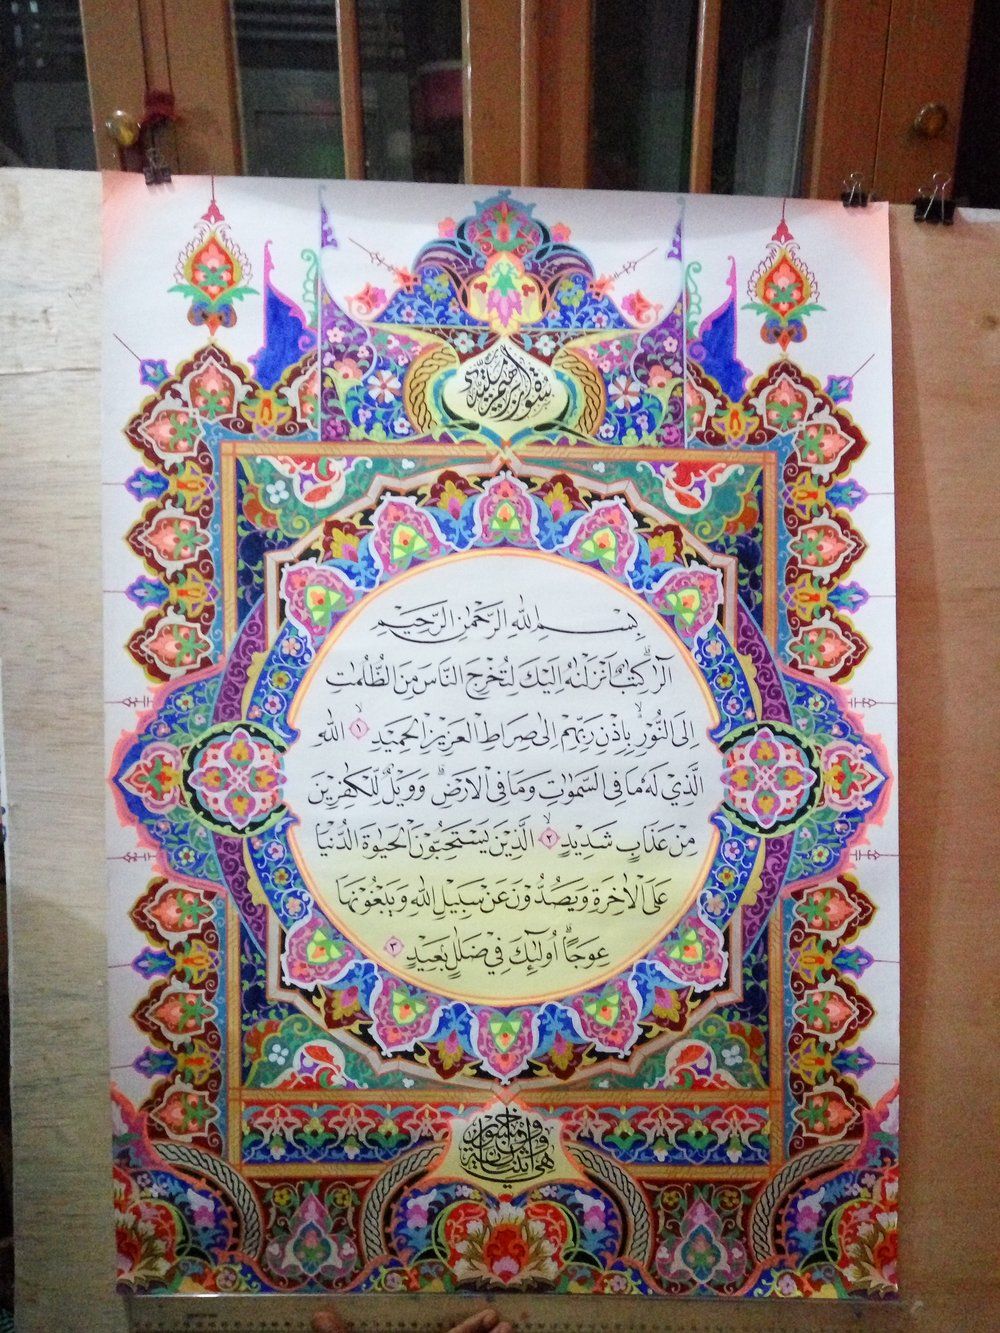 سورة ابرهيم مكية
بِسْمِ اللهِ الرَّحْمٰنِ الرَّحِيْمِ
الٓرٰ ۗ كِتٰبٌ اَنْزَلْنٰهُ اِلَيْكَ لِتُخْرِجَ النَّاسَ مِنَ الظُّلُمٰتِ
اِلَى النُّوْرِ ەۙ بِاِذْنِ رَبِّهِمْ اِلٰى صِرَاطِ الْعَزِيْزِ الْحَمِيْدِۙ ١ اللّٰهِ
الَّذِيْ لَهٗ مَا فِى السَّمٰوٰتِ وَمَا فِى الْاَرْضِۗ وَوَيْلٌ لِّلْكٰفِرِيْنَ
مِنْ عَذَابٍ شَدِيْدٍۙ ٢ الَّذِيْنَ يَسْتَحِبُّوْنَ الْحَيٰوةَ الدُّنْيَا
عَلَى الْاٰخِرَةِ وَيَصُدُّوْنَ عَنْ سَبِيْلِ اللّٰهِ وَيَبْغُوْنَهَا
عِوَجًاۗ اُولٰۤىِٕكَ فِيْ ضَلٰلٍ بَعِيْدٍ ٣
وهي اثنتان وخمسون اية